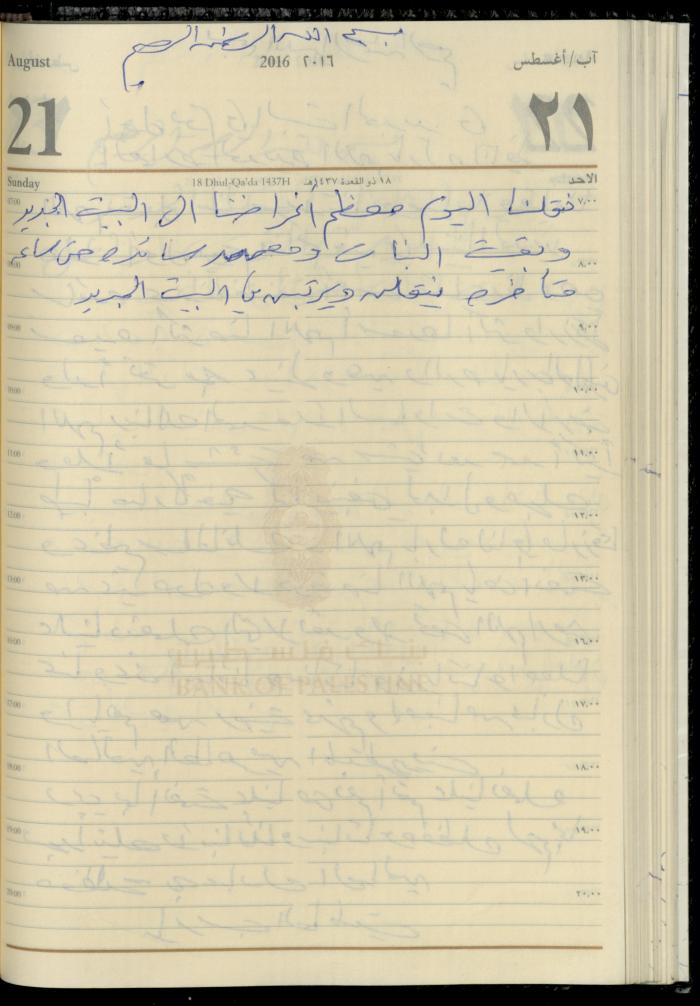 بسم الله الرحمن الرحيم
August 2016 ٢٠١٦ آب/أغسطس
21 ٢١
Sunday 18 Dhul-Qa'da 1437H ١٨ ذو القعدة ١٤٣٧هـ الاحد
نقلنا اليوم معظم أغراضنا الى البيت الجديد
وبقيت البنات ومحمد ساعة
متأخرة ينقلن ويرتبن في البيت الجديد
07:00 ٧,٠٠
08:00 ٨,٠٠
09:00 ٩,٠٠
10:00 ١٠,٠٠
11:00 ١١,٠٠
12:00 ١٢,٠٠
13:00 ١٣,٠٠
16:00 ١٦,٠٠
17:00 ١٧,٠٠
18:00 ١٨,٠٠
19:00 ١٩,٠٠
20:00 ٢٠,٠٠
بنك فلسطين
BANK OF PALESTINE